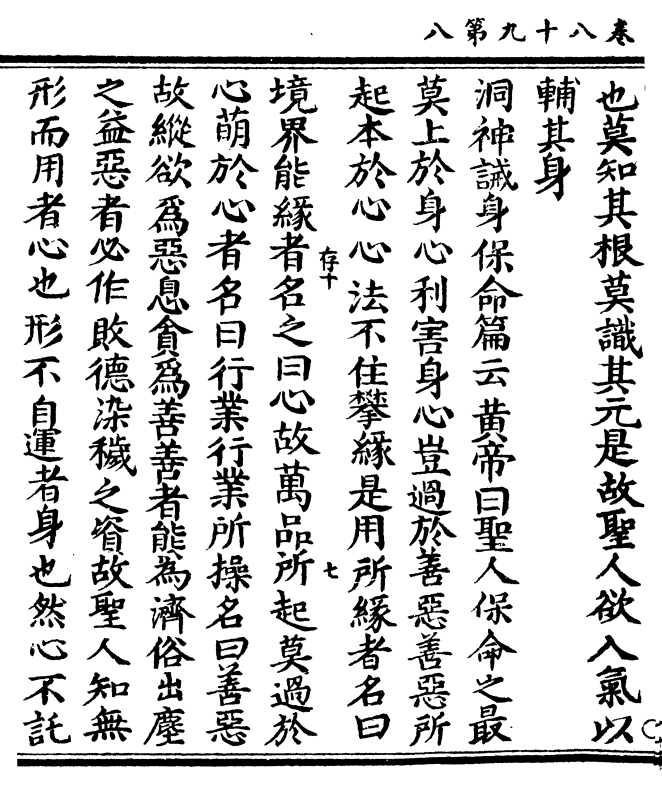 卷八十九第八
也莫知其根莫識其元是故聖人欲入氣以
輔其身
洞神誡身保命篇云黄帝曰聖人保命之最
莫上於身心利害身心豈過於善惡善惡所
起本於心心法不住攀緣是用所緣者名曰
境界能緣者名之曰心故萬品所起莫過於
存十
七
心萌於心者名曰行業行業所操名曰善惡
故縱欲爲惡息貪爲善善者能為濟俗出塵
之益惡者必作敗德染穢之資故聖人知無
形而用者心也形不自運者身也然心不託